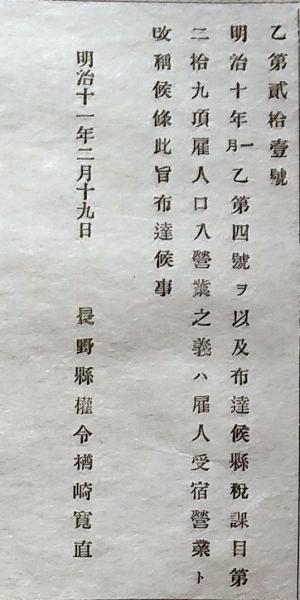 乙第貳拾壹號
明治十年一月乙第四號ヲ以及布達候縣稅課目第
二拾九項雇人口入營業之義ハ雇人受宿營業ト
改稱候條此旨布達候事
明治十一年二月十九日　長野縣權令楢崎寬直